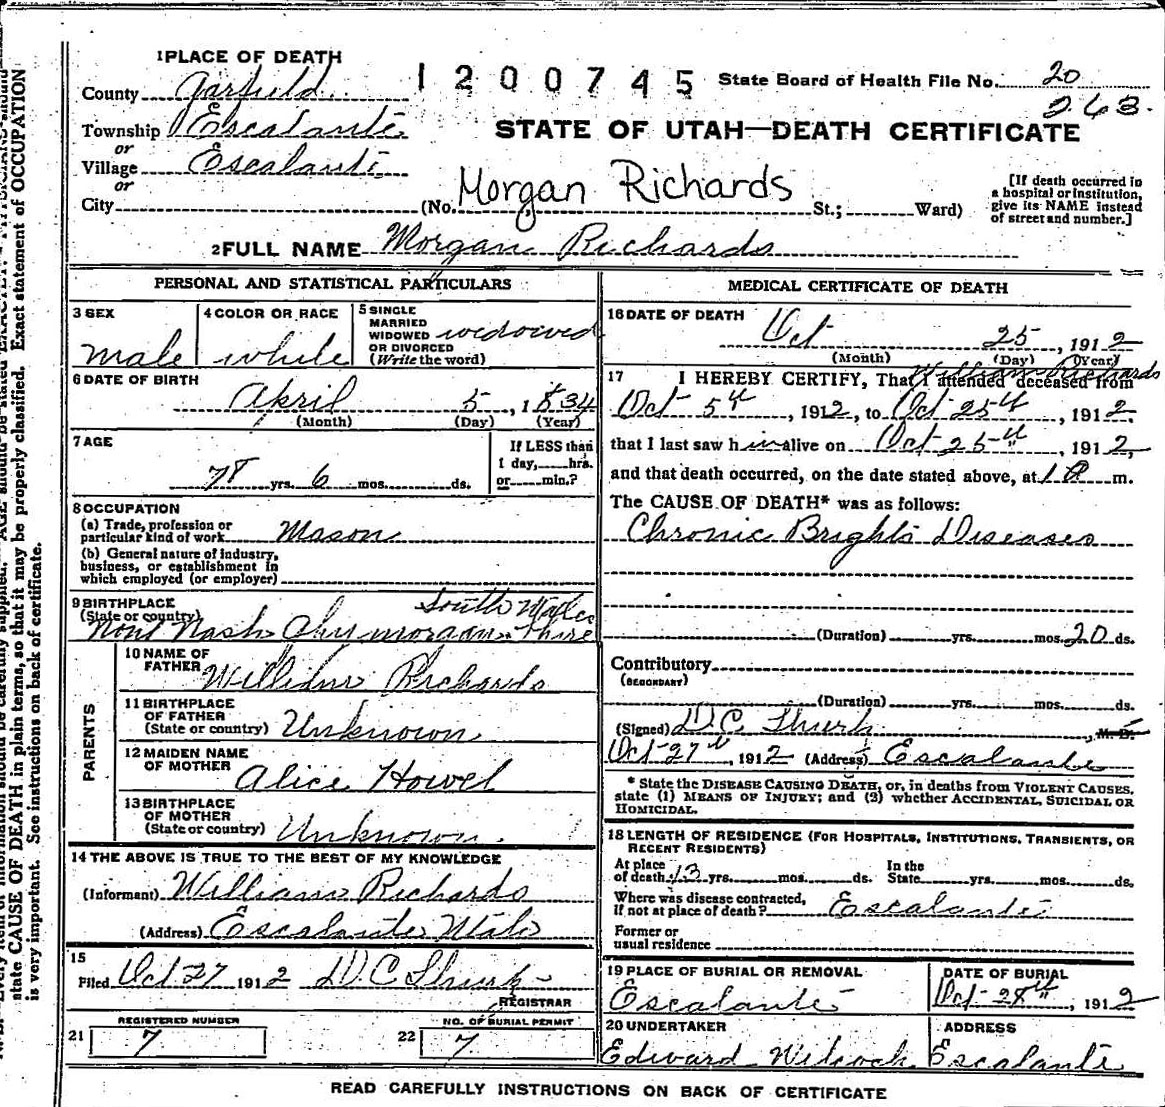 1 PLACE OF DEATH
1200745 State Board of Health File No. 20
263.
County Garfield
Township Escalante
or
Village Escalante
or
City (No. Morgan Richards St.; Ward)
STATE OF UTAH—DEATH CERTIFICATE
[If death occurred in
a hospital or institution,
give its NAME instead
of street and number.]
2 FULL NAME Morgan Richards
PERSONAL AND STATISTICAL PARTICULARS
3 SEX
male
4 COLOR OR RACE
white
5 SINGLE
MARRIED
WIDOWED widowed
OR DIVORCED
(Write the word)
6 DATE OF BIRTH
April 5, 1834
(Month) (Day) (Year)
7 AGE
78 yrs. 6 mos. ds.
If LESS than
1 day, hrs.
or min.?
8 OCCUPATION
(a) Trade, profession or
particular kind of work Mason
(b) General nature of industry,
business, or establishment in
which employed (or employer)
9 BIRTHPLACE South Wales
(State or country)
PARENTS
10 NAME OF
FATHER William Richards
11 BIRTHPLACE
OF FATHER
(State or country) Unknown
12 MAIDEN NAME
OF MOTHER
Alice Howel
13 BIRTHPLACE
OF MOTHER
(State or country) Unknown.
14 THE ABOVE IS TRUE TO THE BEST OF MY KNOWLEDGE
(Informant) William Richards
(Address) Escalante Utah
15
Filed Oct 27 1912 D.C. Shurtz
REGISTRAR
REGISTERED NUMBER
21 7
NO. OF BURIAL PERMIT
22 7
MEDICAL CERTIFICATE OF DEATH
16 DATE OF DEATH
Oct 25, 1912
(Month) (Day) (Year)
William Richards
17 I HEREBY CERTIFY, That I attended deceased from
Oct 5th, 1912, to Oct 25th, 1912.
that I last saw him alive on Oct 25th, 1912,
and that death occurred, on the date stated above, at 1 P m.
The CAUSE OF DEATH* was as follows:
Chronic Brights Diseases
(Duration) yrs. mos. 20 ds.
Contributory
(SECONDARY)
(Duration) yrs. mos. ds.
(Signed) D.C. Shurtz, M.D.
Oct 27th, 1912 (Address) Escalante
* State the DISEASE CAUSING DEATH, or, in deaths from VIOLENT CAUSES,
state (1) MEANS OF INJURY; and (2) whether ACCIDENTAL, SUICIDAL OR
HOMICIDAL.
18 LENGTH OF RESIDENCE (FOR HOSPITALS, INSTITUTIONS, TRANSIENTS, OR
RECENT RESIDENTS)
At place In the
of death 13 yrs. mos. ds. State yrs. mos. ds.
Where was disease contracted,
if not at place of death? Escalante
Former or
usual residence
19 PLACE OF BURIAL OR REMOVAL
Escalante
DATE OF BURIAL
Oct 28th, 1912
20 UNDERTAKER
Edward Wilcock
ADDRESS
Escalante
READ CAREFULLY INSTRUCTIONS ON BACK OF CERTIFICATE
state CAUSE OF DEATH in plain terms, so that it may be properly classified. Exact statement of OCCUPATION
is very important. See instructions on back of certificate.